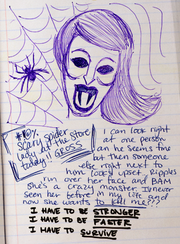 *@!%
scary spider
lady at the store
today!! GROSS
I can look right
at one person
and he seems fine
but then someone
else right next to
him looks upset, Ripples
run over her face and BAM
she's a crazy monster. I never
seen her before in my life and
now she wants to kill me??
I HAVE TO BE STRONGER
I HAVE TO BE FASTER
I HAVE TO SURVIVE